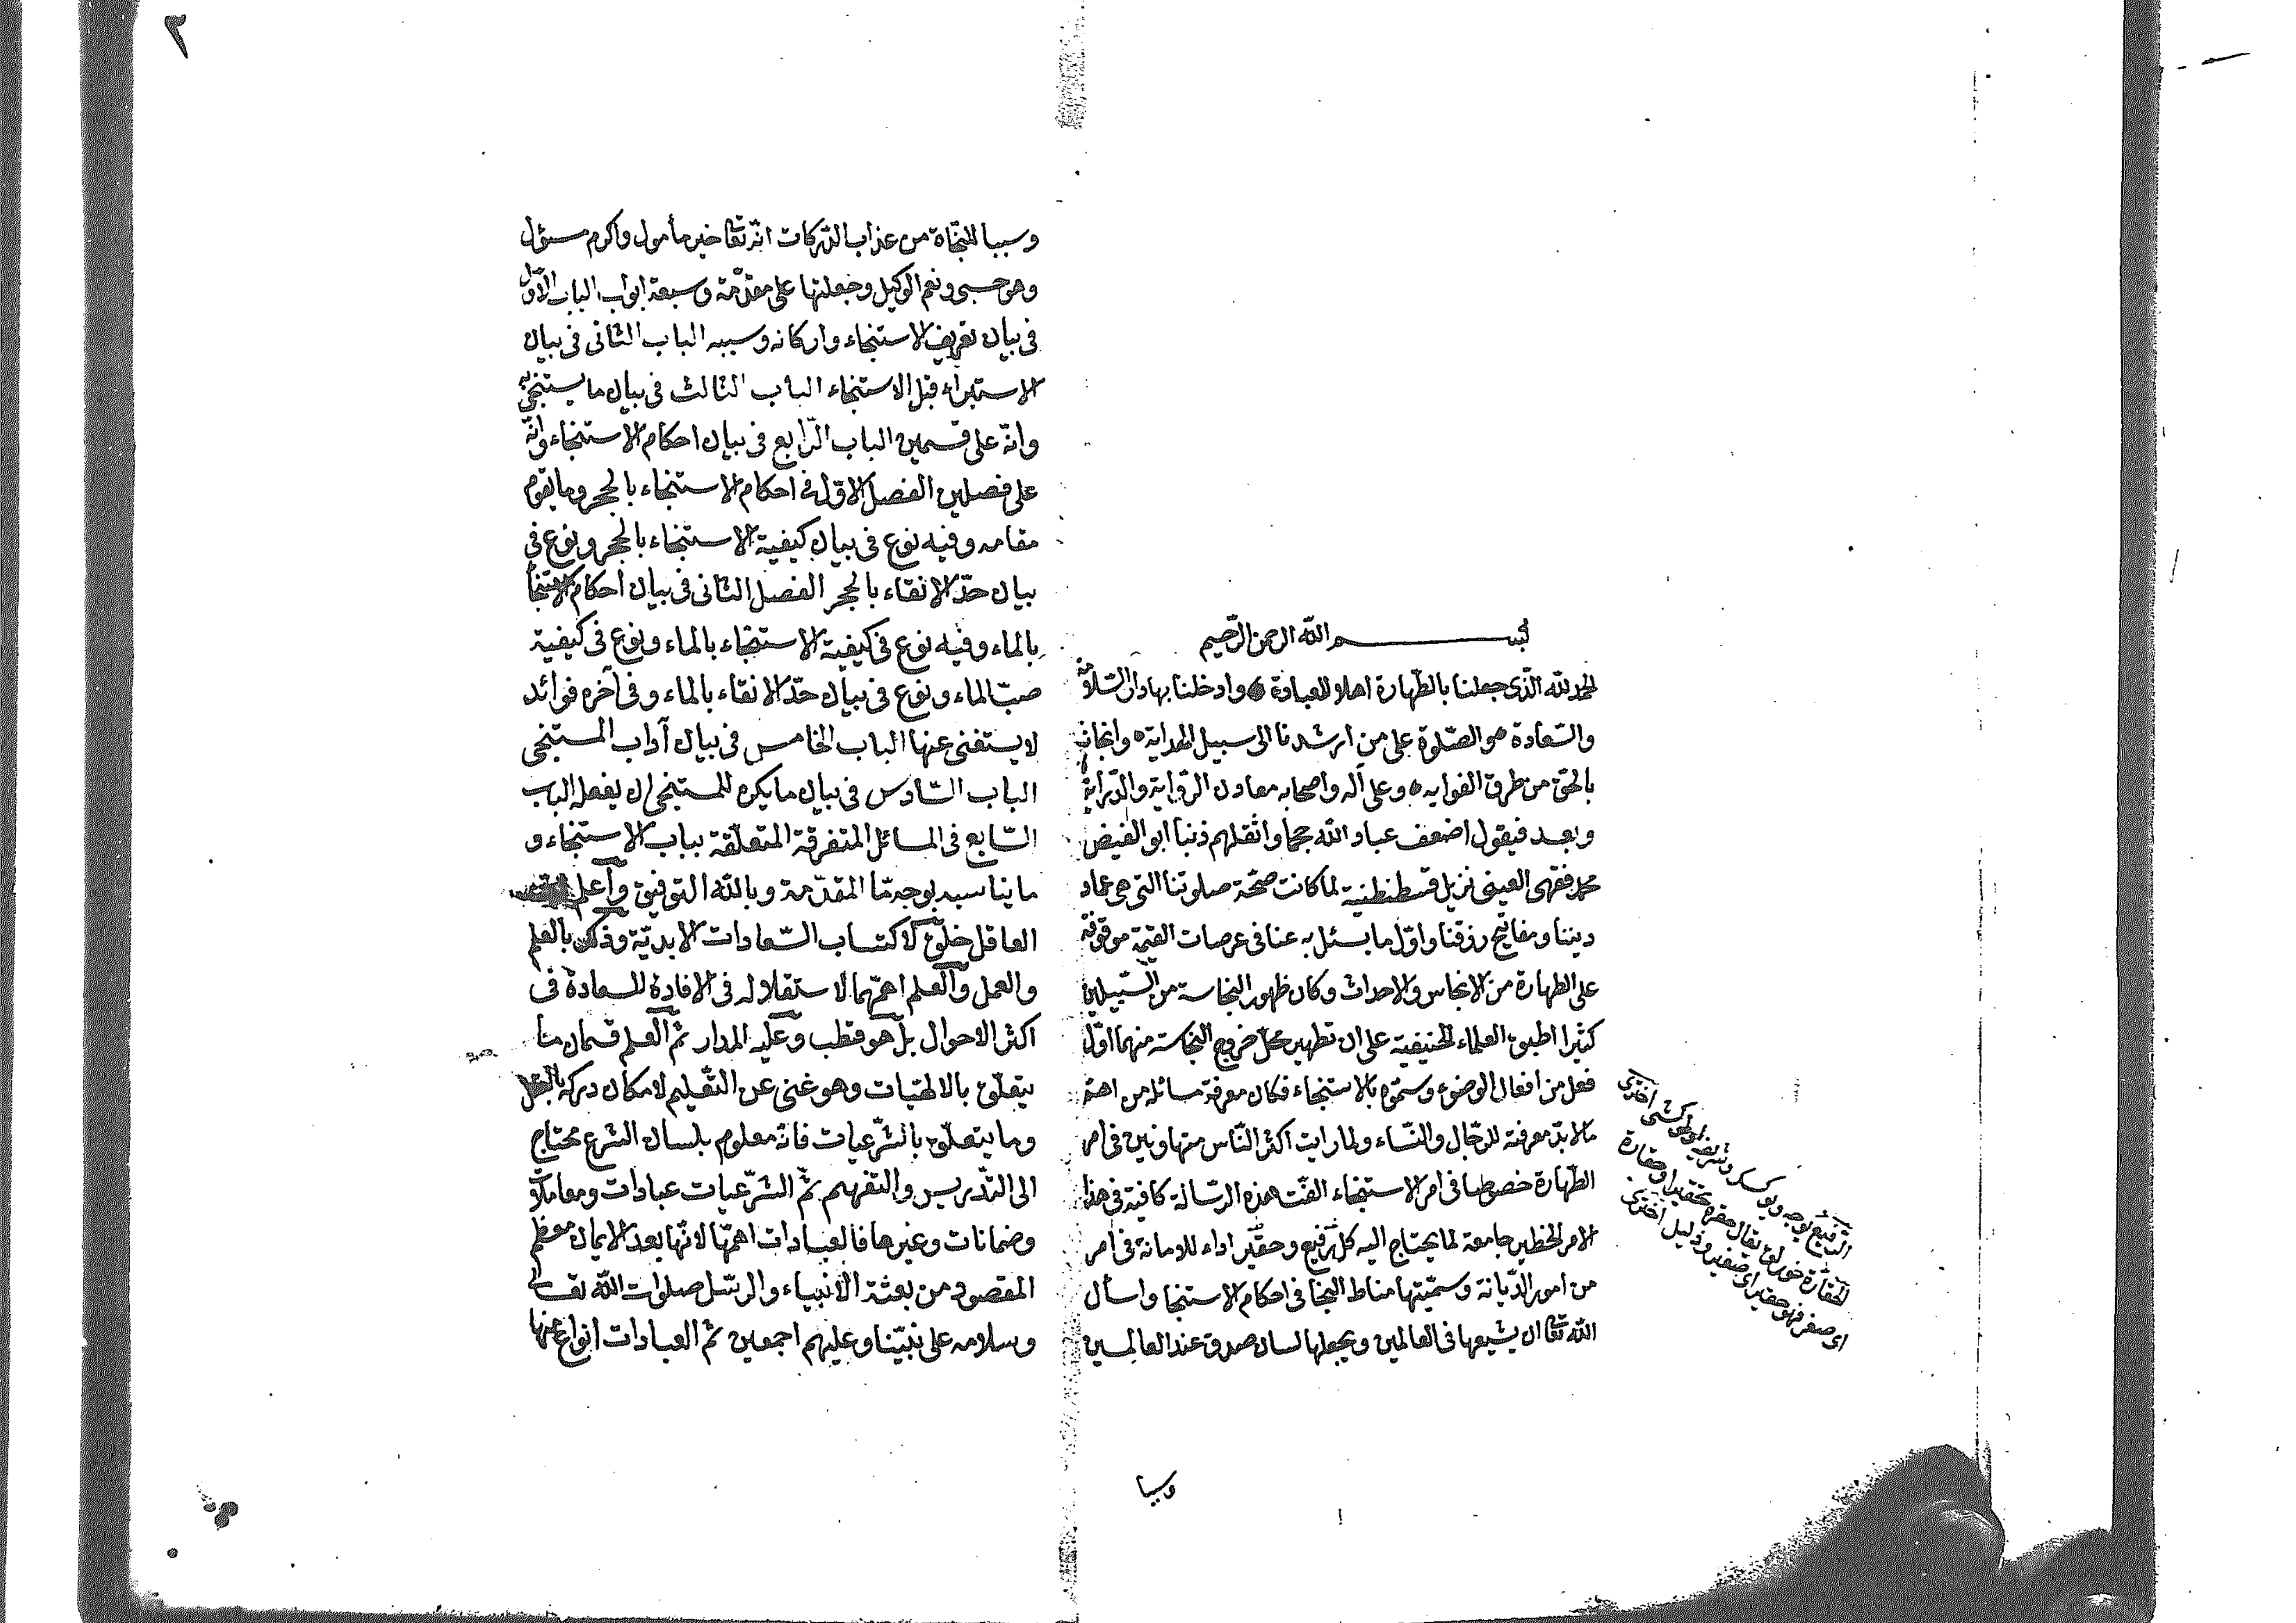 بسم الله الرحمن الرحيم
الحمد لله الذى جعلنا بالطهارة اهلا للعبادة وادخلنا بها دار السلامة
والسعادة والصلوة على من ارشدنا الى سبيل الهداية وانجانا
بالحق من طرق الغوايه وعلى آله واصحابه معادن الرواية والدراية
وبعد فيقول اضعف عباد الله جحما واثقلهم ذنبا ابو الفيض
محمد فقهى العينى نزيل قسطنطنية لما كانت صحة صلوتنا التى هى عماد
ديننا ومفاتيح رزقنا واول ما يسئل به عنا فى عرصات القيمة موقوفة
على الطهارة من الانجاس والاحداث وكان ظهور النجاسة من السبيلين
كثيرا اطبق العلماء الحنيفية على ان تطهير محل خروج النجاسة منهما اول
فعل من افعال الوضوء وسموه بالاستنجاء فكان معرفة مسائله من اهم
ما لا بد معرفته للرجال والنساء ولما رايت اكثر الناس متهاونين فى امر
الطهارة خصوصا فى امر الاستنجاء الفت هذه الرسالة كافية فى هذا
الامر الخطير جامعة لما يحتاج اليه كل رفيع وحقير اداء للامانة فى امر
من امور الديانة وسميتها مناط النجا فى احكام الاستنجا واسأل
الله تعا ان يشيعها فى العالمين ويجعلها لسان صدق عند العالمين
وسببا
الرفيع يوجه ويوكسك
الحقارة خورلق يقال حقره تحقيرا وحقارة
اى صغر فهو حقير اى صغير وذليل اخترى
٢
وسببا للنجاة من عذاب الدركات انه تعا خير مأمول واكرم مسئول
وهو حسبى ونعم الوكيل وجعلتها على مقدمة وسبعة ابواب الباب الاول
فى بيان تعريف الاستنجاء واركانه وسببه الباب الثانى فى بيان
الاستبراء قبل الاستنجاء الباب الثالث فى بيان ما يستنجى به
وانه على قسمين الباب الرابع فى بيان احكام الاستنجاء وانه
على فصلين الفصل الاول فى احكام الاستنجاء بالحجر وما يقوم
مقامه وفيه نوع فى بيان كيفية الاستنجاء بالحجر ونوع فى
بيان حد الانقاء بالحجر الفصل الثانى فى بيان احكام الاستنجا
بالماء وفيه نوع فى كيفية الاستنجاء بالماء ونوع فى كيفية
صب الماء ونوع فى بيان حد الانقاء بالماء وفى آخره فوائد
لا يستغنى عنها الباب الخامس فى بيان آداب المستنجى
الباب السادس فى بيان ما يكره للمستنجى ان يفعله الباب
السابع فى المسائل المتفرقة المتعلقة بباب الاستنجاء و
ما يناسبه بوجه ما المقدمة وبالله التوفيق واعلم
العاقل خلق لاكتساب السعادات الابدية وذلك بالعلم
والعمل والعلم اهمهما لاستقلاله فى الافادة للسعادة فى
اكثر الاحوال بل هو قطب وعليه المدار ثم العلم قسمان ما
يتعلق بالالهيات وهو غنى عن التعليم لامكان دركه بالعقل
وما يتعلق بالشرعيات فانه معلوم بلسان الشرع محتاج
الى التدريس والتفهيم ثم الشرعيات عبادات ومعاملات
وضمانات وغيرها فالعبادات اهمها لانها بعد الايمان معظم
المقصود من بعثة الانبياء والرسل صلوات الله تعالى
وسلامه على نبينا وعليهم اجمعين ثم العبادات انواع منها